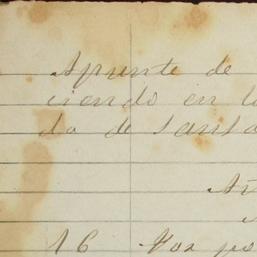 Apunte de
ciendo en l
do de Santo
Añ
16 Por po